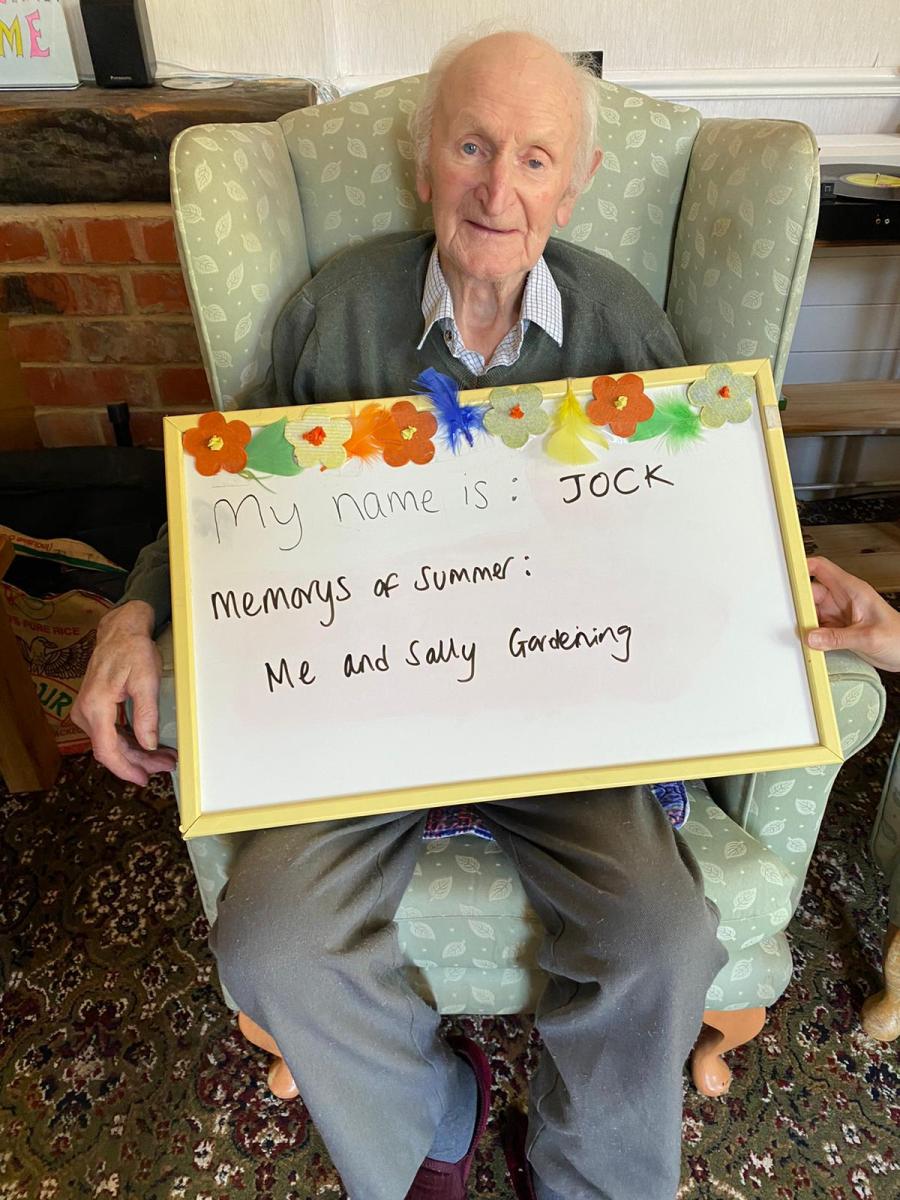 ME
My name is : JOCK
Memorys of summer:
Me and Sally Gardening
PURE RICE